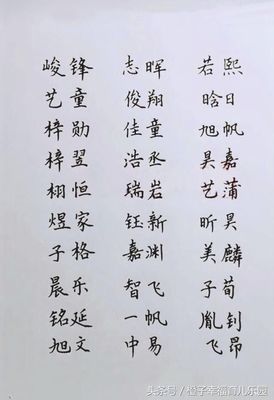 峻锋 志晖 若熙
艺童 俊翔 晗日
梓勋 佳童 旭帆
梓翌 浩丞 昊嘉
栩恒 瑞岩 艺蒲
煜家 钰新 昕昊
子格 嘉渊 美麟
晨乐 智飞 子荀
铭延 一帆 胤钊
旭文 中易 飞昂
头条号/橙子幸福育儿乐园